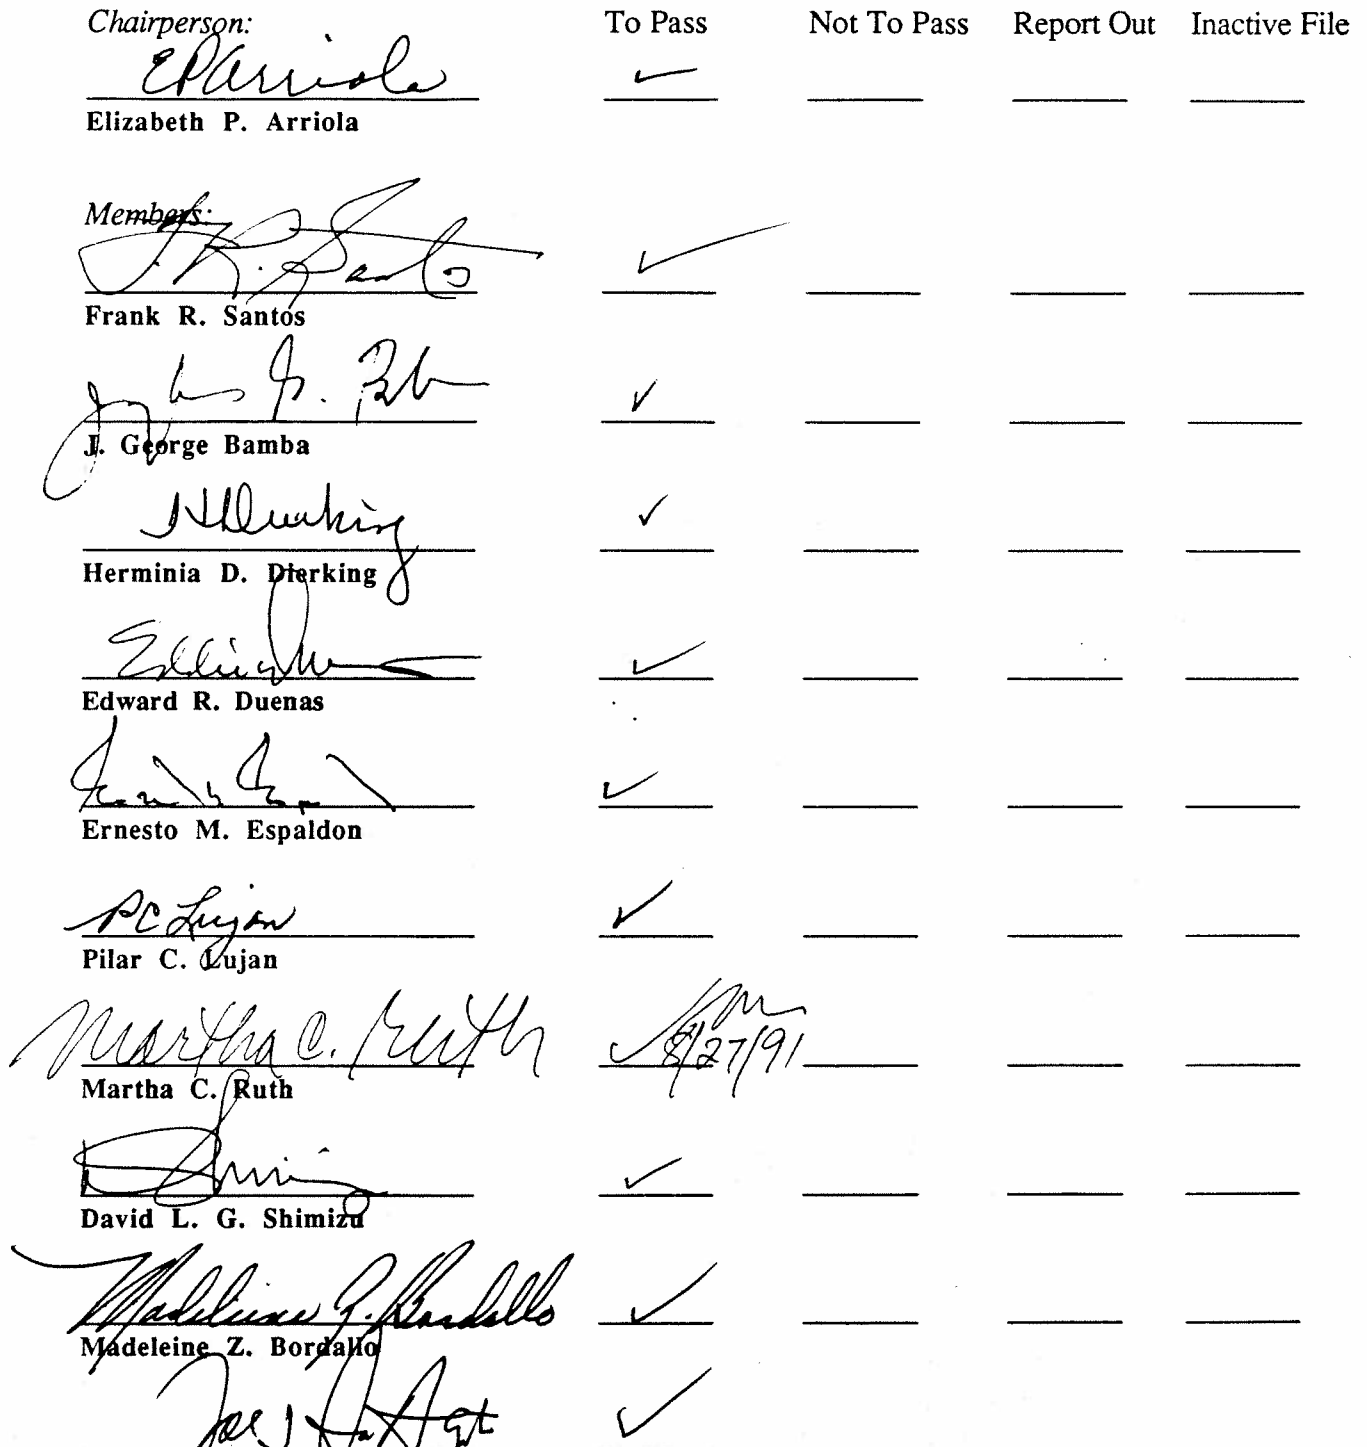 Chairperson: To Pass Not To Pass Report Out Inactive File
EPArriola ✓
Elizabeth P. Arriola
Members:
F. R. Santos ✓
Frank R. Santos
✓
J. George Bamba
HDierking ✓
Herminia D. Dierking
Eddie Duenas ✓
Edward R. Duenas
✓
Ernesto M. Espaldon
PC Lujan ✓
Pilar C. Lujan
Martha C. Ruth ✓ 8/27/91
Martha C. Ruth
✓
David L. G. Shimizu
Madeleine Z. Bordallo ✓
Madeleine Z. Bordallo
✓